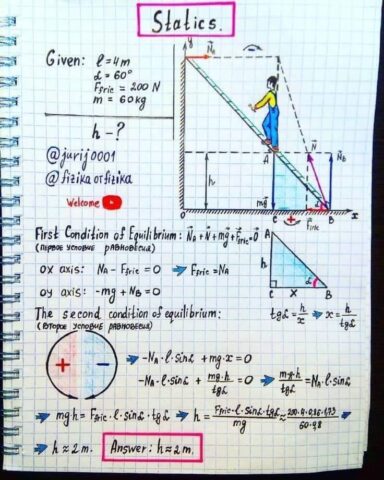 Statics.
Given: ℓ = 4m
α = 60°
Ffric = 200 N
m = 60kg
h - ?
@jurij0001
@fizika ot fizika
Welcome
y
N_A
A
h
mg
N
N_B
α
C
B
x
Ffric
+
First Condition of Equilibrium: N_A + N + mg + Ffric = 0
(первое условие равновесия)
ox axis: N_A - Ffric = 0 ⇒ Ffric = N_A
oy axis: -mg + N_B = 0
A
h
α
C
x
B
tgα = h/x ⇒ x = h/tgα
The second condition of equilibrium:
(второе условие равновесия)
+ -
⇒ -N_A·ℓ·sinα + mg·x = 0
-N_A·ℓ·sinα + mg·h/tgα = 0 ⇒ mg·h/tgα = N_A·ℓ·sinα
⇒ mgh = Ffric·ℓ·sinα·tgα ⇒ h = Ffric·ℓ·sinα·tgα/mg ≈ 200·4·0,86·1,73/60·9,8 ⇒
⇒ h ≈ 2 m. Answer: h ≈ 2 m.